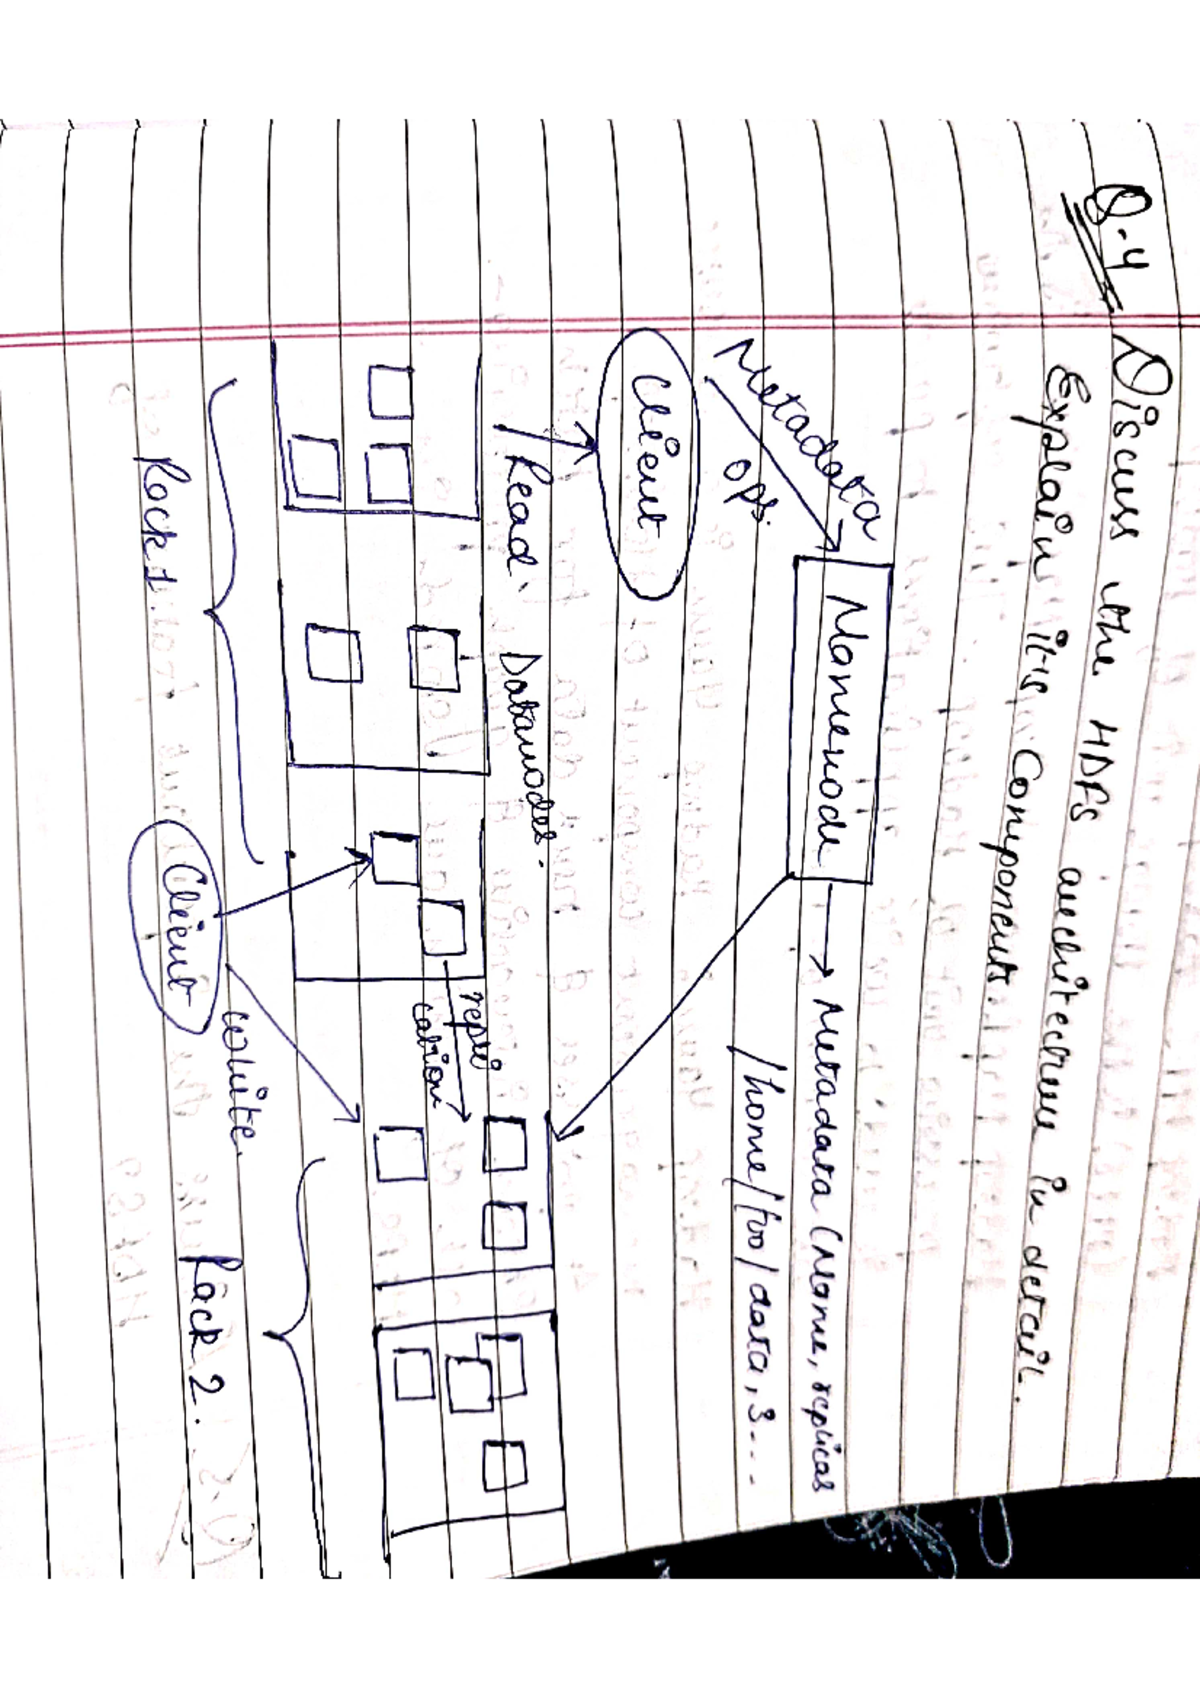 Q.4 Discuss the HDFS architecture in detail.
Explain its Components.
Metadata
ops.
Namenode
Metadata (Name, replicas
/home/foo/data, 3...
Client
Read
Datanodes.
repli
cation
Client
write.
Rack 1.
Rack 2.